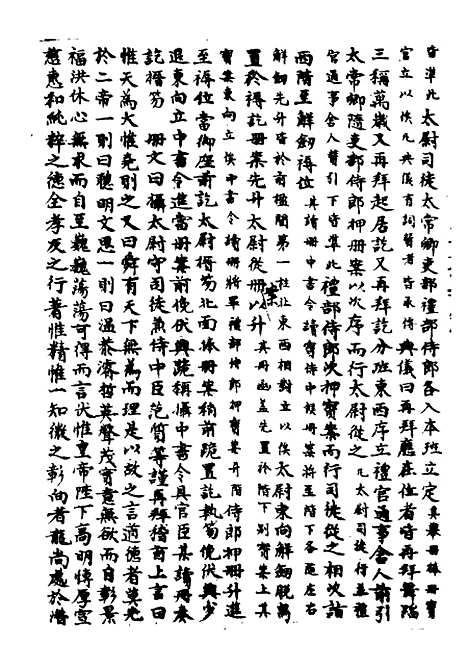 皆準此 太尉司徒太常卿吏部禮部侍郎各入本班立定 其舉冊舁冊寶
官立以俟凡典儀有詞贊者皆承傳 典儀曰再拜應在位者皆再拜舞蹈
三稱萬歲又再拜起居訖又再拜訖分班東西序立禮官通事舍人前引
太常卿隨吏部侍郎押冊案以次序而行太尉從之 凡太尉司徒行並禮
官通事舍人贊引下皆準此 禮部侍郎次押寶案而行司徒從之相次詣
西階至解劍褥位 其讀冊中書令讀寶侍中候冊案將至階下各區左右
解劍先升皆於前楹間第一柱北東西相對立以俟 太尉東向解劍脫舄
置於褥訖冊案先升太尉從冊案以升 其冊函蓋先置於階下別案上其
寶案東向立俟中書令讀冊將畢禮部侍郎押寶案升階 侍郎押冊升進
至褥位當御座前訖太尉搢笏北面俛冊案稍前跪置訖執笏俛伏興少
退東向立中書令進當冊案前俛伏興跪稱攝中書令具官臣某讀冊奉
訖搢笏 冊文曰攝太尉守司徒兼侍中臣范質等謹再拜稽首上言曰
惟天為大惟堯則之又曰舜有天下無為而理是以故之言道德者莫先
於二帝一則曰聰明文思一則曰溫恭濬哲英聲茂實意無欲而自彰景
福洪休心無求而自至巍巍蕩蕩可得而言伏惟皇帝陛下高明博厚宣
慈惠和純粹之德全孝友之行著惟精惟一知微之彰向者龍尚處於潛